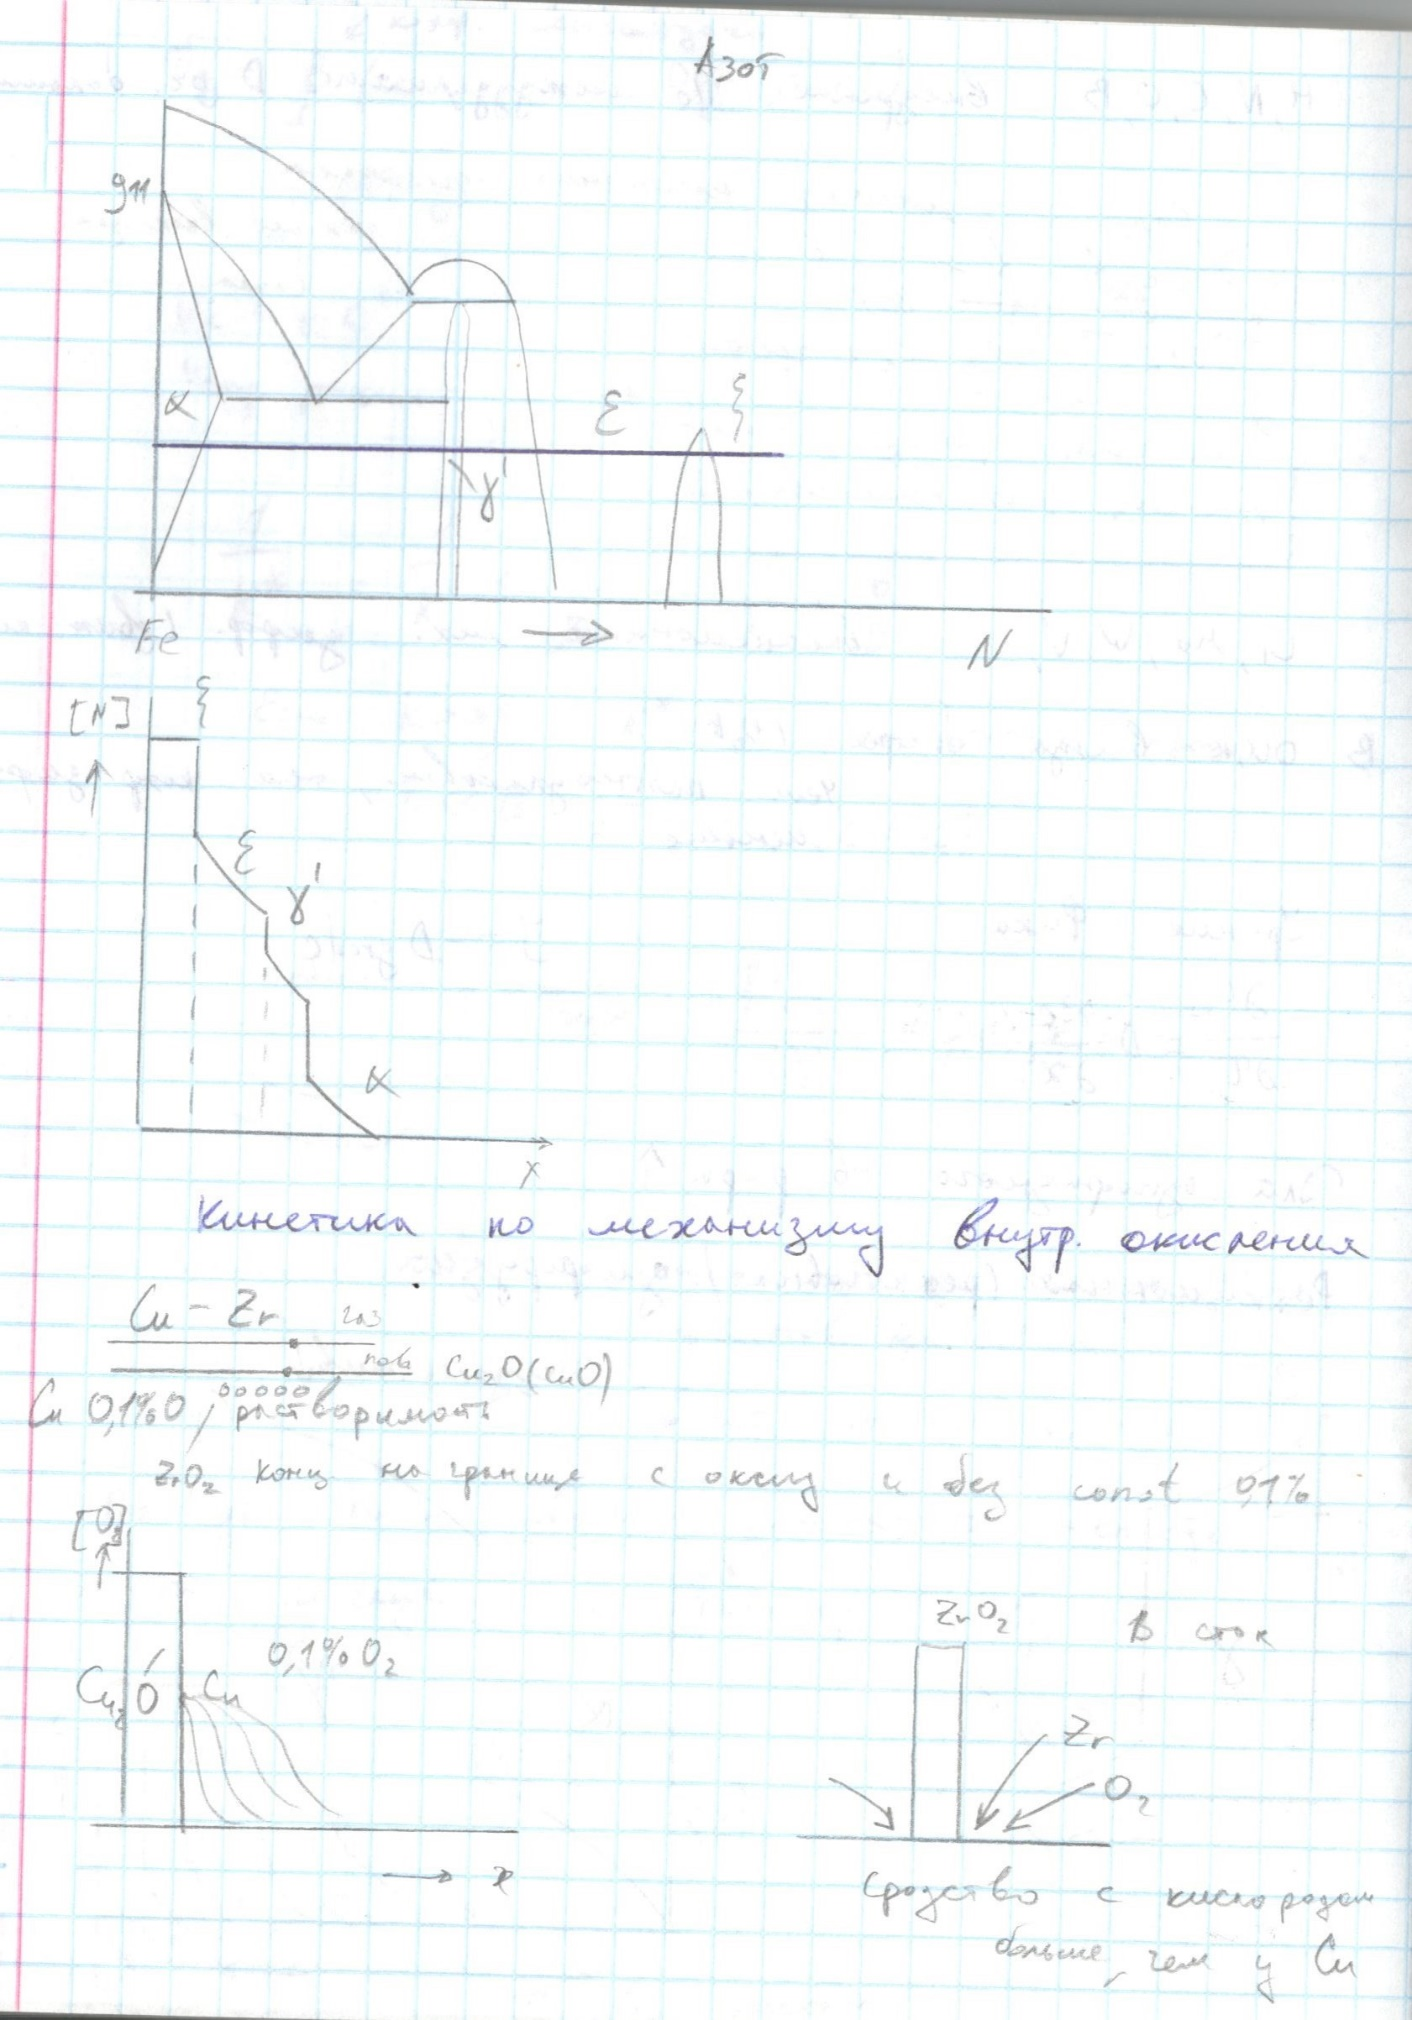 Азот
911
α
ε
ξ
γ'
Fe
N
[N]
ξ
ε
γ'
α
x
Кинетика по механизму внутр. окисления
Cu - Zr газ
Cu₂O(CuO)
Cu 0,1%O, растворимость
ZrO₂ конц на границе с оксид и без const 0,1%
[O₂]
0,1% O₂
Cu₂O Cu
x
ZrO₂ В сток
Zr
O₂
Сродство с кислородом
больше, чем у Cu